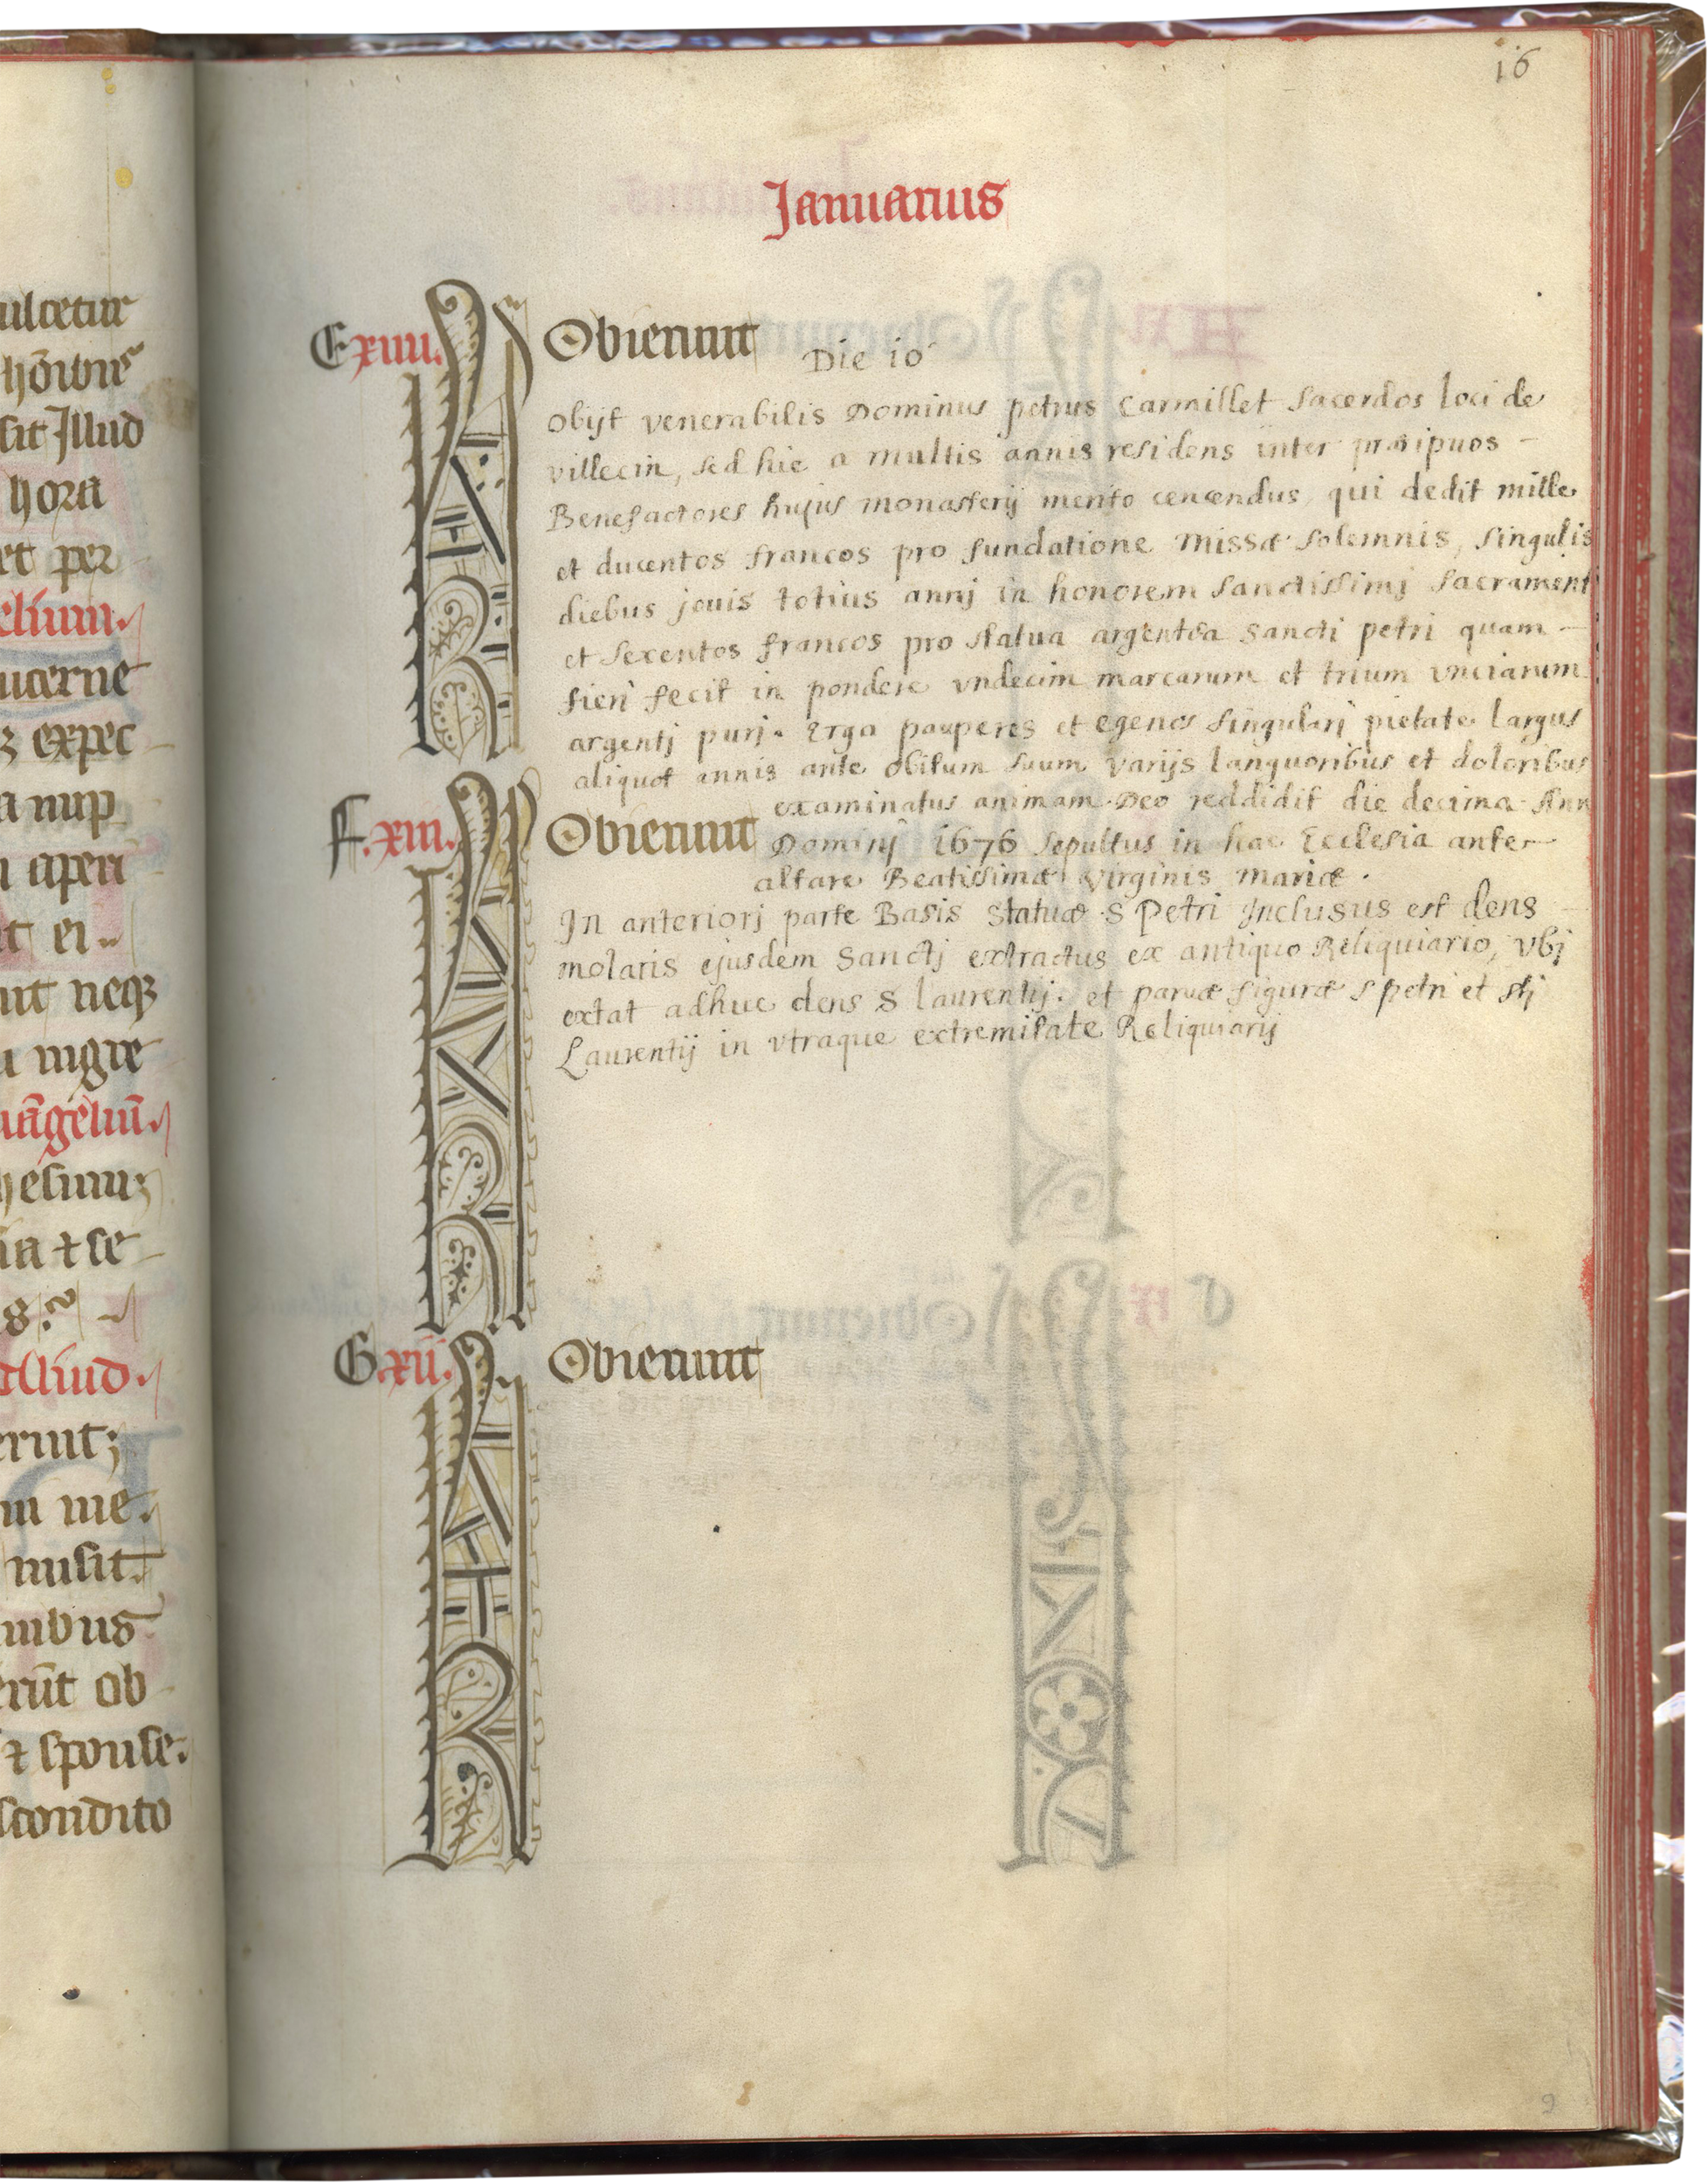 ulcetur
sit Illud
hora
et per
ucerne
expec
a nup
aperi
it ei
neq3
nigre
t se
erunt;
m me.
misit.
ob
spouse.
scondito
16
Januarius
E xiiii. Obierunt
Die io
Obijt venerabilis Dominus petrus Carmillet sacerdos loci de
villecin, sed hic a multis annis residens inter præcipuos –
Benefactores hujus monasterij merito cencendus, qui dedit mille
et ducentos francos pro fundatione missæ solemnis, singulis
diebus jouis totius annj in honorem sanctissimj sacrament
et sexentos francos pro statua argentea sancti petri quam –
fieri fecit in pondere vndecim marcarum et trium vnciarum
argentj purj. Erga pauperes et egenos singularj pietate largus
aliquot annis ante obitum suum varijs languoribus et doloribus
examinatus animam Deo reddidit die decima Ann
F. xiii. Obierunt Dominj 1676 sepultus in hac Ecclesia ante –
altare Beatissimæ virginis mariæ .
In anteriorj parte Basis statuæ S Petri Inclusus est dens
molaris ejusdem Sanctj extractus ex antiquo Reliquiario, vbj
extat adhuc dens S laurentij. et paruæ figuræ s petri et stj
Laurentij in vtraque extremitate Reliquiarij
G xii. Obierunt
9